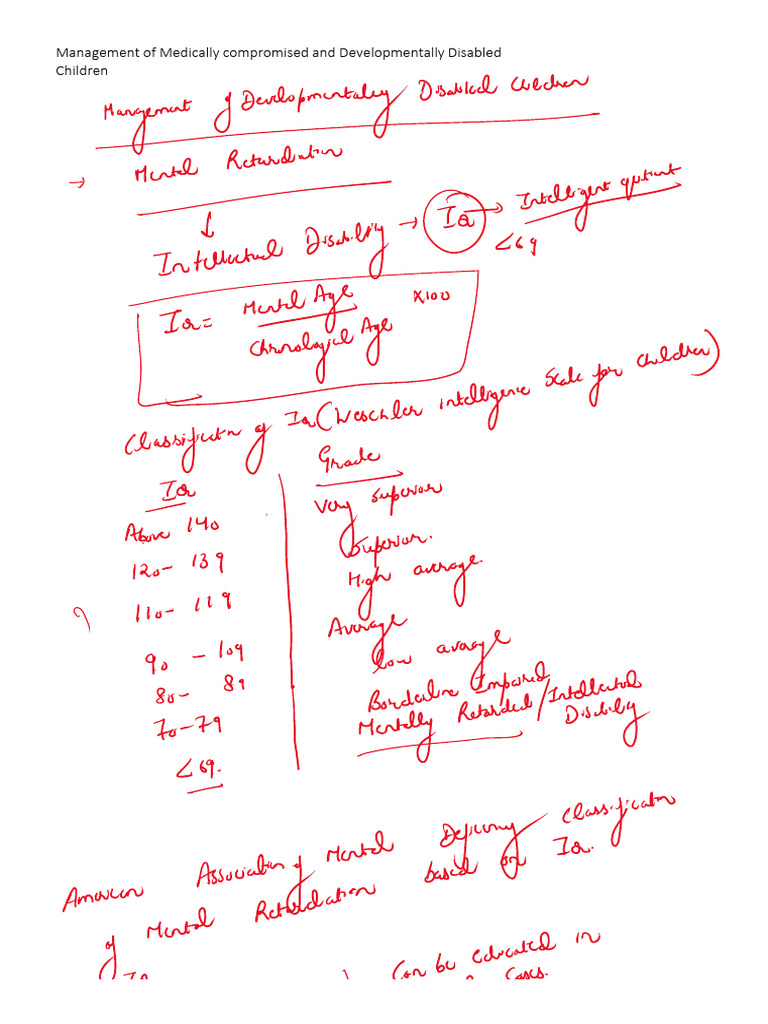 Management of Medically compromised and Developmentally Disabled
Children
Management of Developmentaley Disabled Children
→ Mental Retardation
↓
Intellectual Disability → IQ → Intelligent qutient
<69
IQ = Mental Age X100
Chronological Age
Classificatn of IQ (Weschler intelligence Scale for children)
IQ Grade
Above 140 Very superior
120- 139 Superior.
110- 119 High average.
90 - 109 Average
80- 89 low avarage
70-79 Borderline Impaired
<69. Mentally Retarded / Intellectual
Disability
American Association of Mental Deficiency Classification
of Mental Retardation based on IQ.
IQ Can be educated in
Cases.